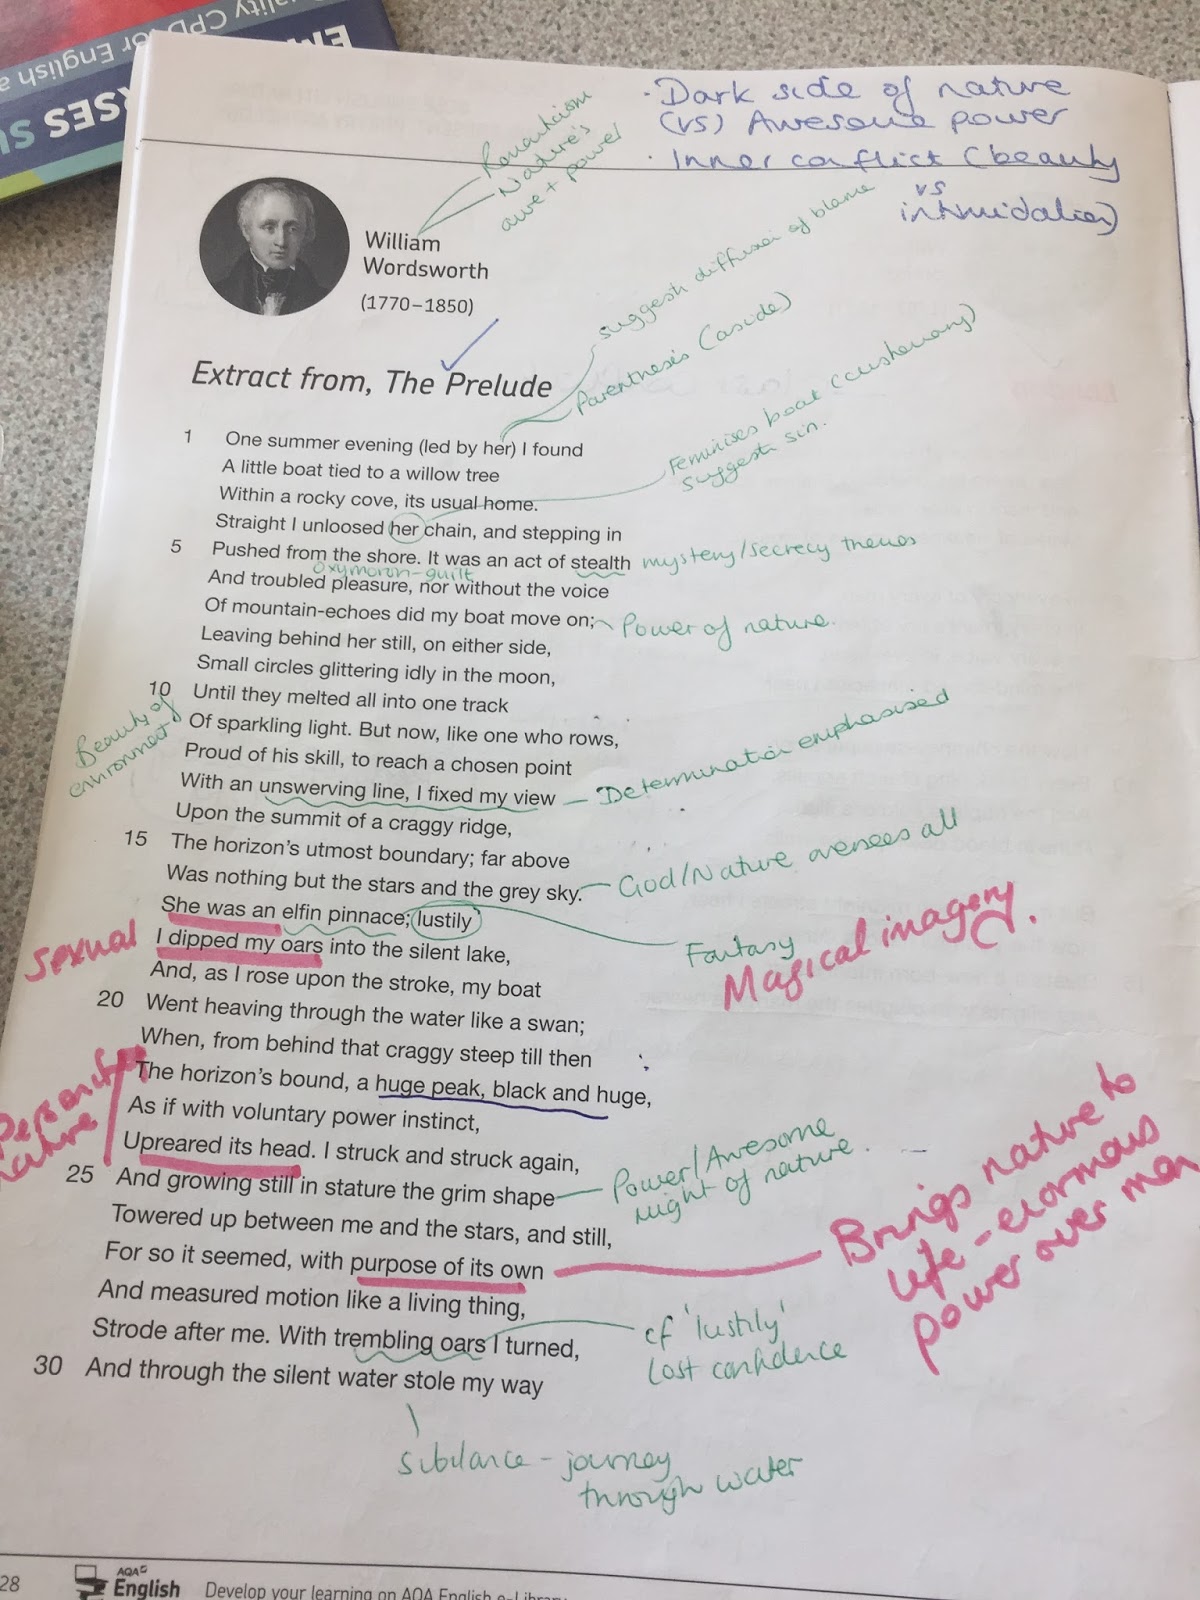 · Dark side of nature
(vs) Awesome power
· Inner conflict (beauty
vs
intimidation)
Romanticism
Nature's
awe + power
William
Wordsworth
(1770–1850)
suggests diffusion of blame
Parenthesis (aside)
Feminises boat (customary)
suggests sin.
Extract from, The Prelude
1 One summer evening (led by her) I found
A little boat tied to a willow tree
Within a rocky cove, its usual home.
Straight I unloosed her chain, and stepping in
5 Pushed from the shore. It was an act of stealth
mystery/secrecy themes
oxymoron-guilt
And troubled pleasure, nor without the voice
Of mountain-echoes did my boat move on;
Power of nature.
Leaving behind her still, on either side,
Small circles glittering idly in the moon,
10 Until they melted all into one track
Beauty of
environment
Of sparkling light. But now, like one who rows,
Proud of his skill, to reach a chosen point
With an unswerving line, I fixed my view
– Determination emphasised
Upon the summit of a craggy ridge,
15 The horizon's utmost boundary; far above
Was nothing but the stars and the grey sky.
God/Nature oversees all
She was an elfin pinnace; lustily
Fantasy
Magical imagery.
sexual
I dipped my oars into the silent lake,
And, as I rose upon the stroke, my boat
20 Went heaving through the water like a swan;
When, from behind that craggy steep till then
The horizon's bound, a huge peak, black and huge,
nature
As if with voluntary power instinct,
Upreared its head. I struck and struck again,
25 And growing still in stature the grim shape
Power/Awesome
might of nature.
Towered up between me and the stars, and still,
For so it seemed, with purpose of its own
Brings nature to
life – enormous
power over man
And measured motion like a living thing,
Strode after me. With trembling oars I turned,
cf 'lustily'
lost confidence
30 And through the silent water stole my way
sibilance – journey
through water
28
AQA
English
Develop your learning on AQA English e-Library